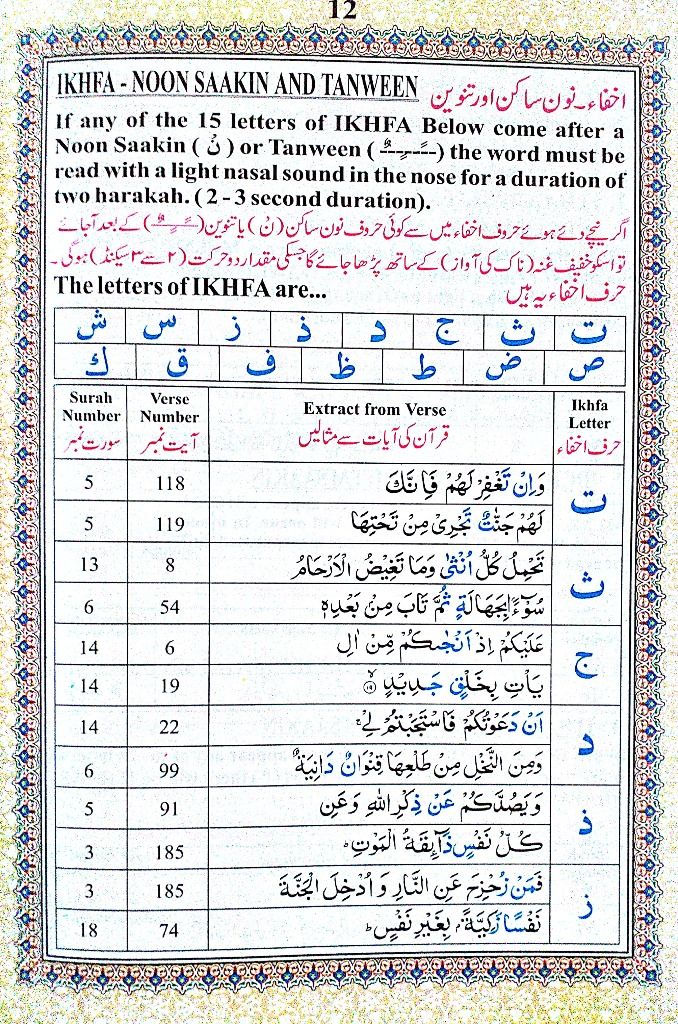 12
IKHFA - NOON SAAKIN AND TANWEEN اخفاء۔ نون ساکن اور تنوین
If any of the 15 letters of IKHFA Below come after a
Noon Saakin ( نْ ) or Tanween ( ـًـٍـٌ ) the word must be
read with a light nasal sound in the nose for a duration of
two harakah. ( 2 - 3 second duration).
اگر نیچے دئے ہوئے حروف اخفاء میں سے کوئی حروف نون ساکن (نْ) یا تنوین (ـًـٍـٌ) کے بعد آجائے
تو اسکو خفیف غنہ (ناک کی آواز) کے ساتھ پڑھا جائے گا جسکی مقدار دو حرکت (۲ سے ۳ سیکنڈ) ہوگی۔
The letters of IKHFA are... حرف اخفاء یہ ہیں
ت ث ج د ذ ز س ش
ص ض ط ظ ف ق ك
Surah Number سورت نمبر Verse Number آیت نمبر Extract from Verse قرآن کی آیات سے مثالیں Ikhfa Letter حرف اخفاء
ت
5 118 وَاِنْ تَغْفِرْ لَهُمْ فَاِنَّكَ
5 119 لَهُمْ جَنّٰتٌ تَجْرِىْ مِنْ تَحْتِهَا
ث
13 8 تَحْمِلُ كُلُّ اُنْثٰى وَمَا تَغِيْضُ الْاَرْحَامُ
6 54 سُوْٓءًۢا بِجَهَالَةٍ ثُمَّ تَابَ مِنْۢ بَعْدِهٖ
ج
14 6 عَلَيْكُمْ اِذْ اَنْجٰىكُمْ مِّنْ اٰلِ
14 19 يَاْتِ بِخَلْقٍ جَدِيْدٍ ۙ‏﴿۱۹﴾
د
14 22 اَنْ دَعَوْتُكُمْ فَاسْتَجَبْتُمْ لِىْ ۚ
6 99 وَمِنَ النَّخْلِ مِنْ طَلْعِهَا قِنْوَانٌ دَانِيَةٌ
ذ
5 91 وَيَصُدَّكُمْ عَنْ ذِكْرِ اللّٰهِ وَعَنِ
3 185 كُلُّ نَفْسٍ ذَآئِقَةُ الْمَوْتِ ؕ
ز
3 185 فَمَنْ زُحْزِحَ عَنِ النَّارِ وَاُدْخِلَ الْجَنَّةَ
18 74 نَفْسًا زَكِيَّةً ۢ بِغَيْرِ نَفْسٍ ؕ